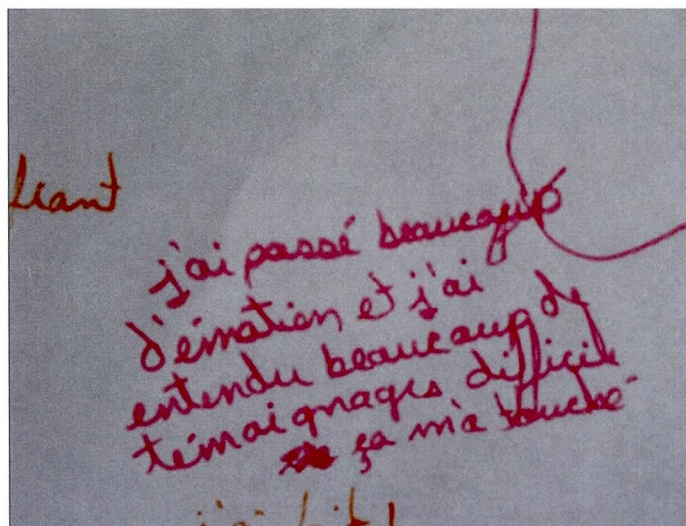 j'ai passé beaucoup
d'émotion et j'ai
entendu beaucoup de
témoignages difficile
ça m'a touché